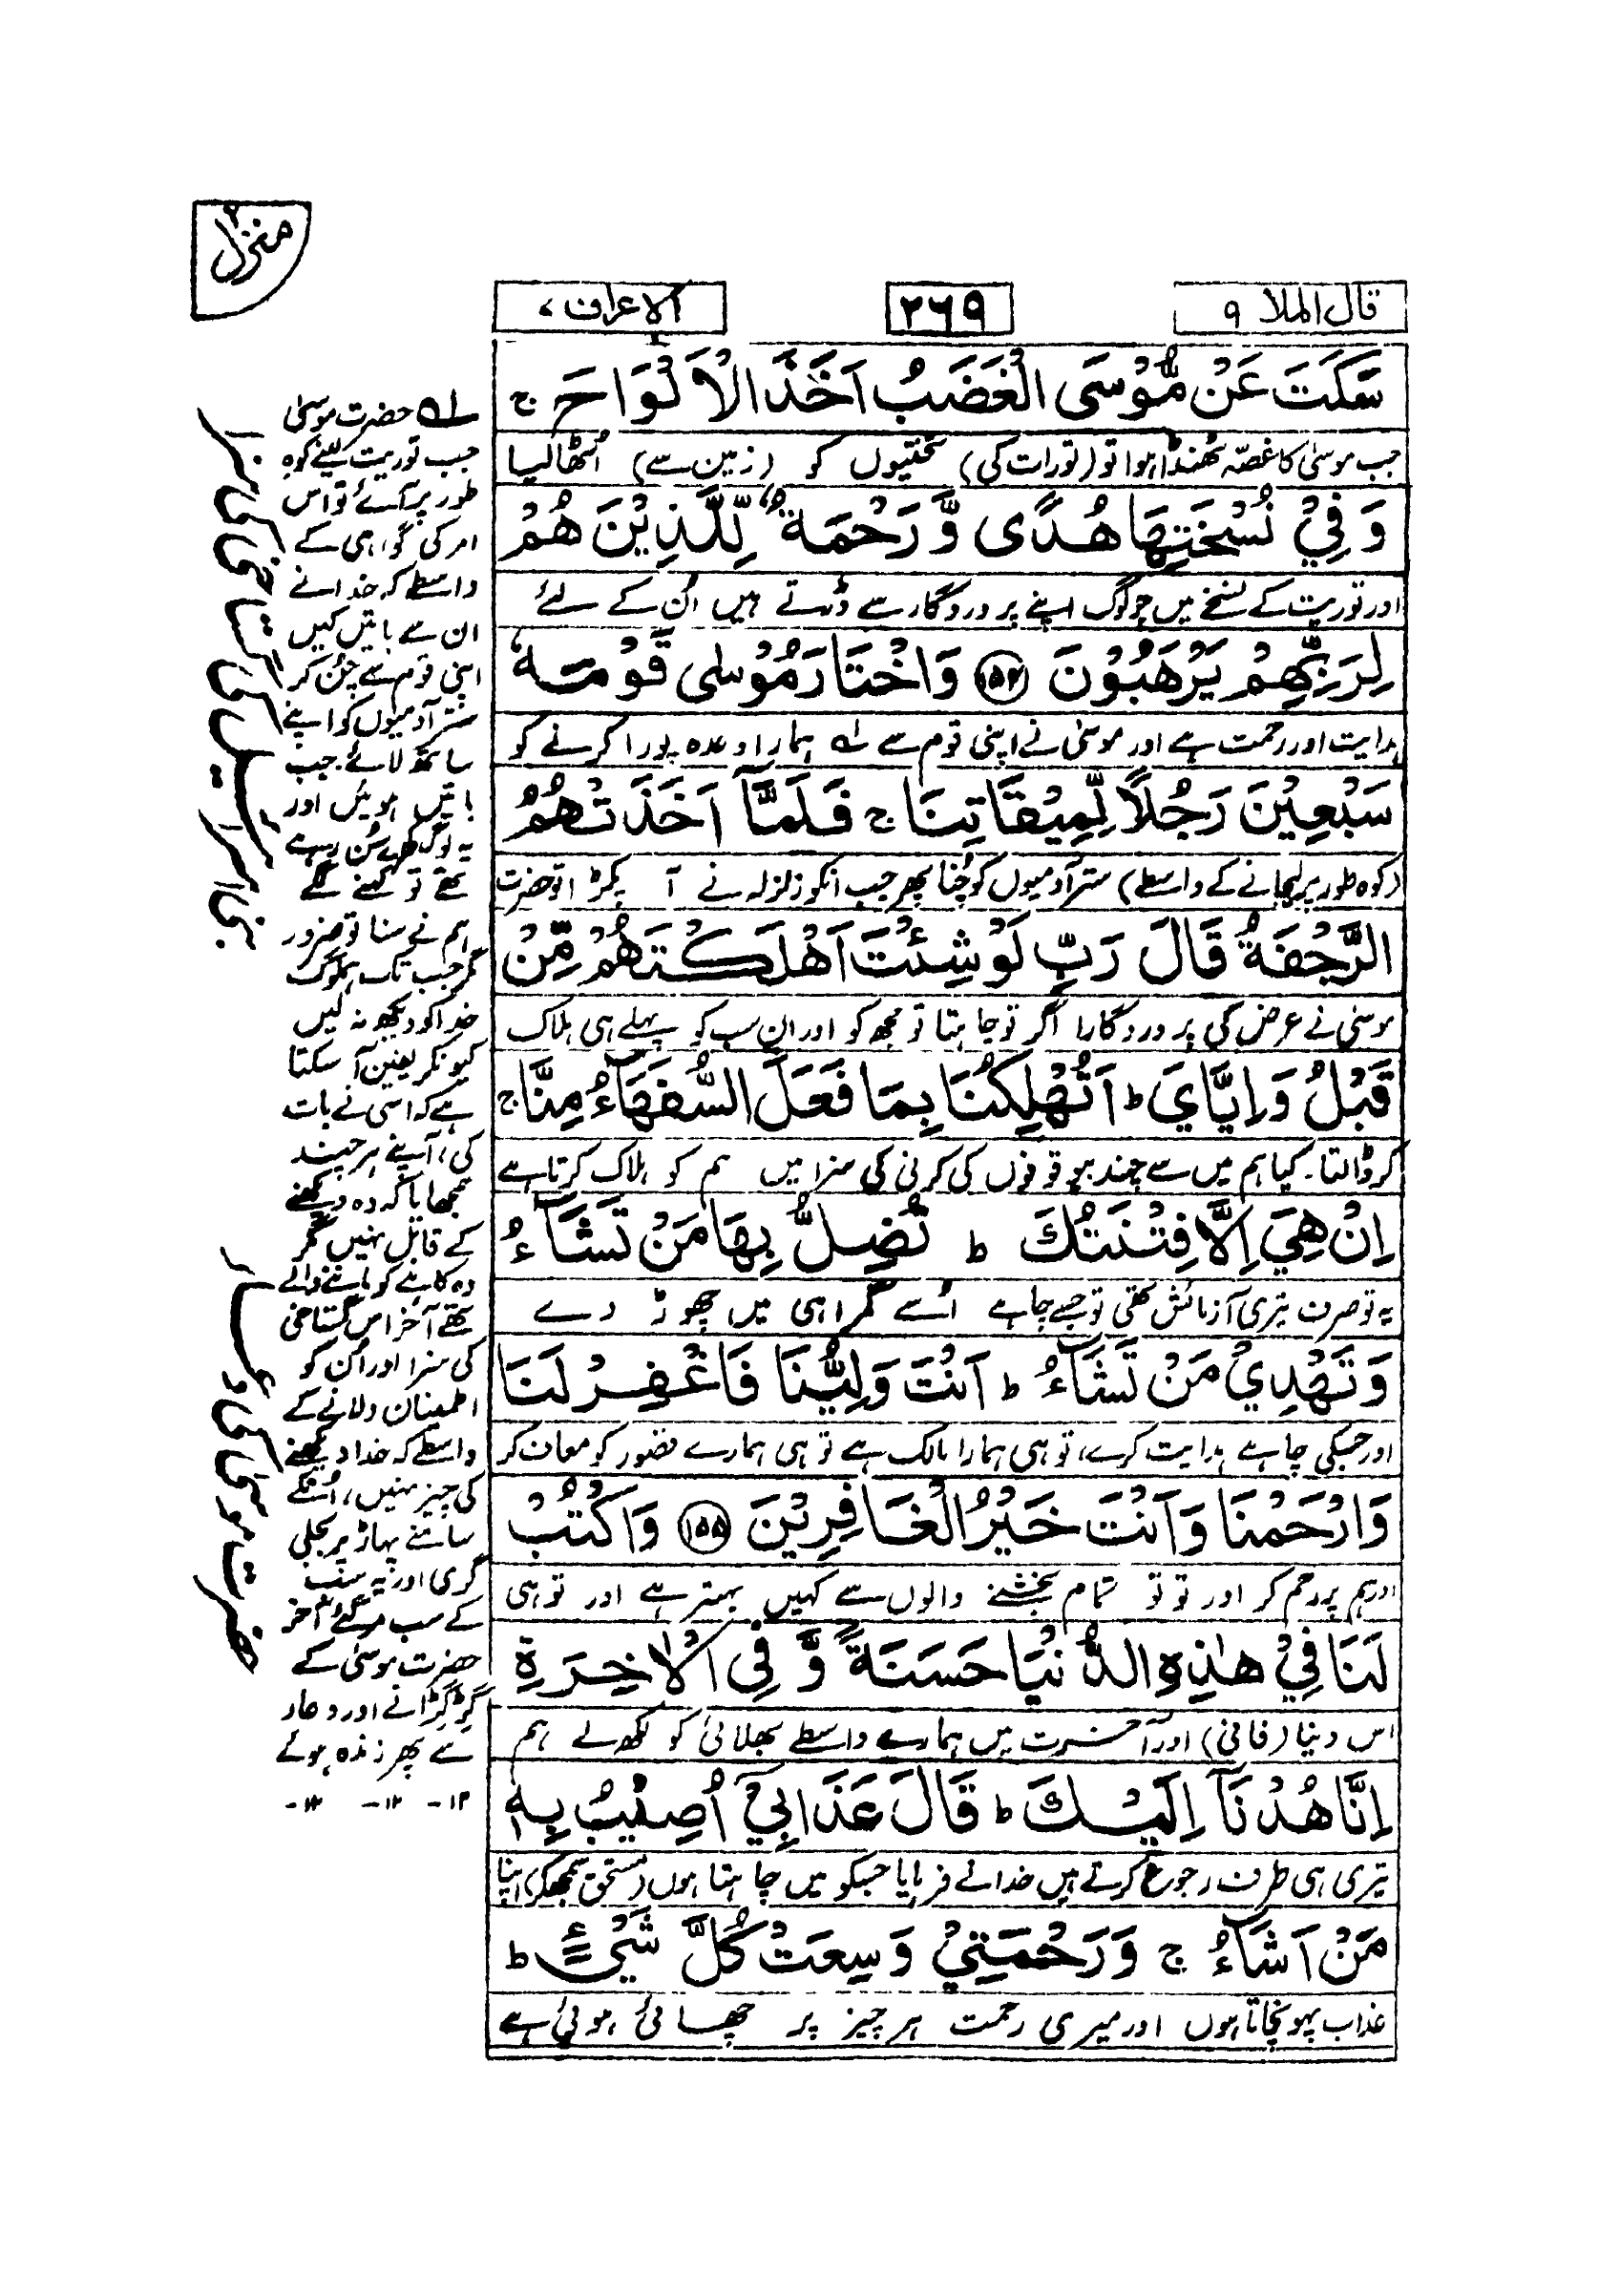 منزل ۲
قال الملا ۹
۲۶۹
الاعراف ۷
سَّكَتَ عَنْ مُّوْسَى الْغَضَبُ اَخَذَ الْاَلْوَاحَ ج
جب موسیٰ کا غصّہ ٹھنڈا ہوا تو (تورات کی) تختیوں کو (زمین سے) اٹھالیا
وَ فِيْ نُسْخَتِهَا هُدًى وَّ رَحْمَةٌ لِّلَّذِيْنَ هُمْ
اور توریت کے نسخے میں جو لوگ اپنے پروردگار سے ڈرتے ہیں اُن کے لئے
لِرَبِّهِمْ يَرْهَبُوْنَ ۝۱۵۴ وَ اخْتَارَ مُوْسٰى قَوْمَهٗ
ہدایت اور رحمت ہے اور موسیٰ نے اپنی قوم سے لہ ہمارا وعدہ پورا کرنے کو
سَبْعِيْنَ رَجُلًا لِّمِيْقَاتِنَا ج فَلَمَّآ اَخَذَتْهُمُ
(کوہ طور پر لیجانے کے واسطے) ستر آدمیوں کو چُنا پھر جب انکو زلزلہ نے آ پکڑا تو حضرت
الرَّجْفَةُ قَالَ رَبِّ لَوْ شِئْتَ اَهْلَكْتَهُمْ مِّنْ
موسیٰ نے عرض کی پروردگارا اگر تو چاہتا تو مجھ کو اور ان سب کو پہلے ہی ہلاک
قَبْلُ وَ اِيَّايَ ط اَتُهْلِكُنَا بِمَا فَعَلَ السُّفَهَآءُ مِنَّا ج
کر ڈالتا۔ کیا ہم میں سے چند بیوقوفوں کی کرنی کی سزا میں ہم کو ہلاک کرتا ہے
اِنْ هِيَ اِلَّا فِتْنَتُكَ ط تُضِلُّ بِهَا مَنْ تَشَآءُ
یہ تو صرف تیری آزمائش تھی تو جسے چاہے اُسے گمراہی میں چھوڑ دے
وَ تَهْدِيْ مَنْ تَشَآءُ ط اَنْتَ وَلِيُّنَا فَاغْفِرْ لَنَا
اور جسکی چاہے ہدایت کرے، تو ہی ہمارا مالک ہے تو ہی ہمارے قصور کو معاف کر
وَ ارْحَمْنَا وَ اَنْتَ خَيْرُ الْغَافِرِيْنَ ۝۱۵۵ وَ اكْتُبْ
اور ہم پر رحم کر اور تو تو تمام بخشنے والوں سے کہیں بہتر ہے اور تو ہی
لَنَا فِيْ هٰذِهِ الدُّنْيَا حَسَنَةً وَّ فِى الْاٰخِرَةِ
اس دنیا (فانی) اور آخرت میں ہمارے واسطے بھلائی کو لکھ لے ہم
اِنَّا هُدْنَآ اِلَيْكَ ط قَالَ عَذَابِيْٓ اُصِيْبُ بِهٖ
تیری ہی طرف رجوع کرتے ہیں خدانے فرمایا جسکو میں چاہتا ہوں (مستحق سمجھکر) اپنا
مَنْ اَشَآءُ ج وَ رَحْمَتِيْ وَسِعَتْ كُلَّ شَيْءٍ ط
عذاب پہونچاتا ہوں اور میری رحمت ہر چیز پر چھائی ہوئی ہے
لہ حضرت موسیٰ
جب توریت لینے کوہِ
طور پر آئے تو اس
امر کی گواہی کے
واسطے کہ خدا نے
ان سے باتیں کیں
اپنی قوم سے چُن کر
ستر آدمیوں کو اپنے
ساتھ لائے۔ جب
باتیں ہوئیں اور
یہ لوگ کھڑے سُن رہے
تھے تو کہنے لگے
ہم نے سنا تو ضرور
مگر جب تک ہملوگ
خدا کو دیکھ نہ لیں
کیونکر یقین آ سکتا
ہے کہ اسی نے بات
کی، آپنے ہر چند
سمجھایا کہ وہ دیکھنے
کے قابل نہیں مگر
وہ کاہے کو ماننے والے
تھے آخر اس گستاخی
کی سزا اور اُن کو
اطمینان دلانے کے
واسطے کہ خدا دیکھنے
کی چیز نہیں، اُنکے
سامنے پہاڑ پر بجلی
گری اور یہ سب
کے سب مر گئے آخر
حضرت موسیٰ کے
گڑگڑانے اور دعاء
سے پھر زندہ ہوئے
۱۲- ۱۲- ۱۲-
بنی اسرائیل کی گستاخی کی سزا
حضرت موسیٰ کی دعا